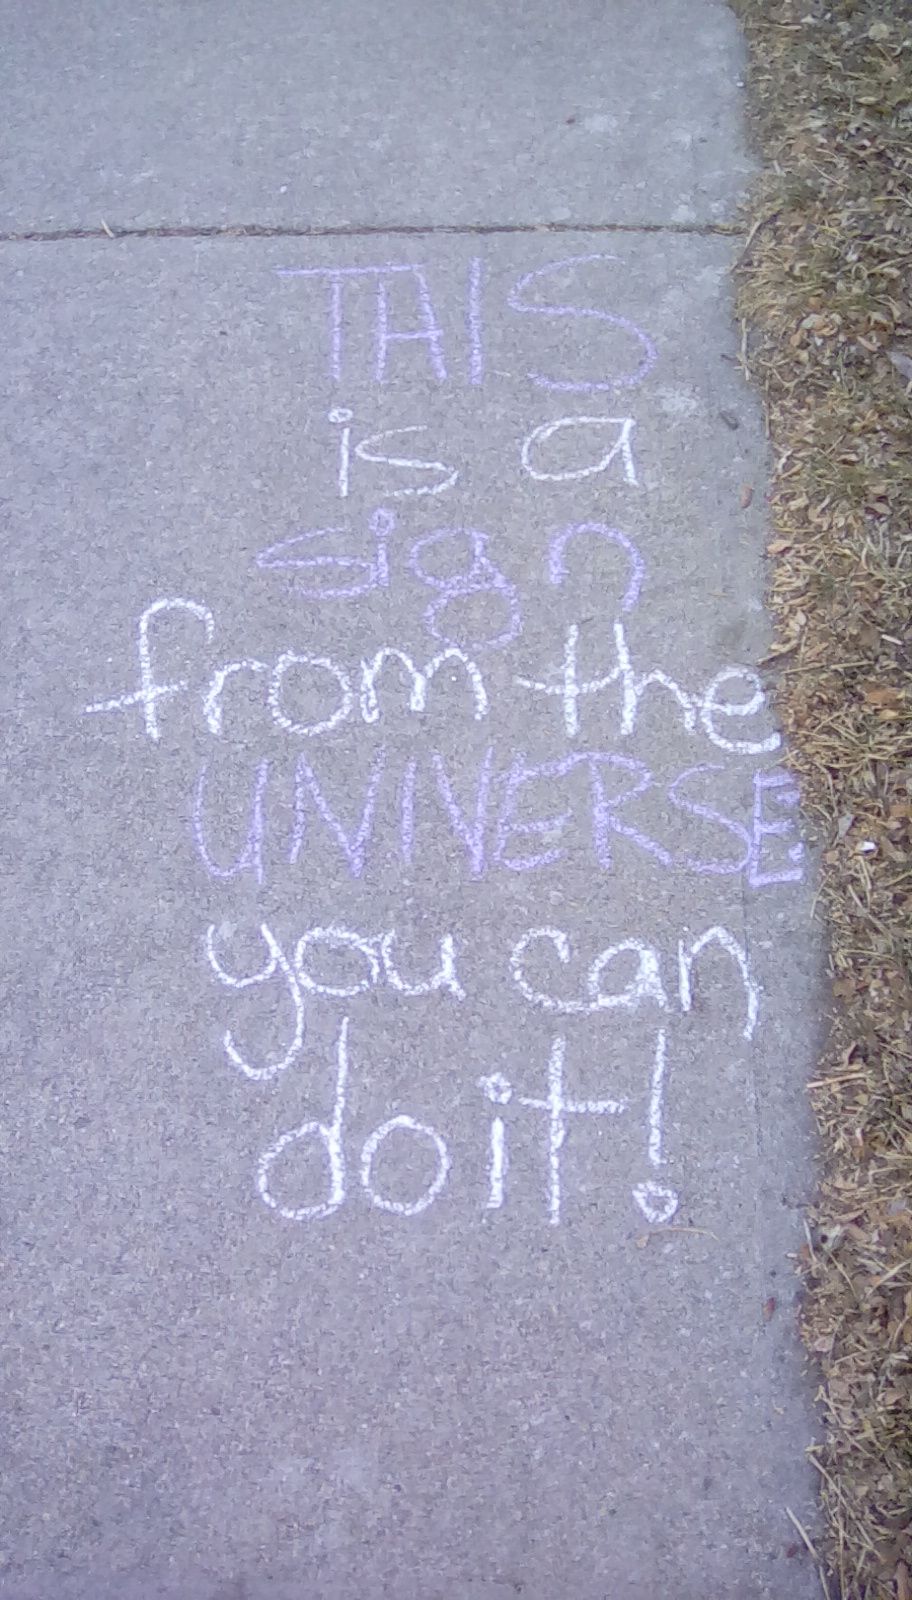 THIS
is a
sign
from the
UNIVERSE
you can
do it!